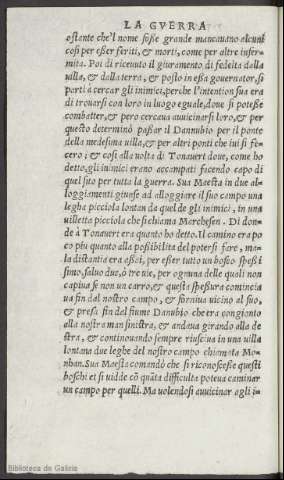 LA GVERRA
ostante che'l nome fosse grande mancauano alcuni
cosi per esser feriti, & morti, come per altre infer-
mita. Poi di riceuuto il giuramento di fedelta dalla
uilla, & dalla terra, & posto in essa gouernator, si
parti à cercar gli inimici, perche l'intention sua era
di trouarsi con loro in luogo eguale, doue si potesse
combatter, & pero cercaua auuicinarsi loro, & per
questo determinò passar il Dannubio per il ponte
della medesima uilla, & per altri ponti che iui si fe-
cero; & cosi alla uolta di Tonauert doue, come ho
detto, gli inimici erano accampati facendo capo di
quel sito per tutta la guerra. Sua Maestà in due al-
loggiamenti giunse ad alloggiare il suo campo una
legha picciola lontan da quel de gli inimici, in una
uilletta picciola che si chiama Marchesen. Di don-
de à Tonauert era quanto ho detto. Il camino era po
co piu quanto alla possibilita del potersi fare, ma-
la distantia era assai, per esser tutto un bosco spessis
simo, saluo due, ò tre uie, per ognuna delle quali non
capiua se non un carro, & questa spessura comincia
ua fin dal nostro campo, & forniua uicino al suo,
& presa fin del fiume Danubio che era congionto
alla nostra man sinistra, & andaua girando alla de
stra, & continouando sempre riusciua in una uilla
lontana due leghe del nostro campo chiamata Mo-
nhan. Sua Maesta comandò che si riconoscesse questi
boschi et si uidde cō quāta difficulta poteua caminar
un campo per quelli. Ma uolendosi auuicinar agli i-
Biblioteca de Galicia